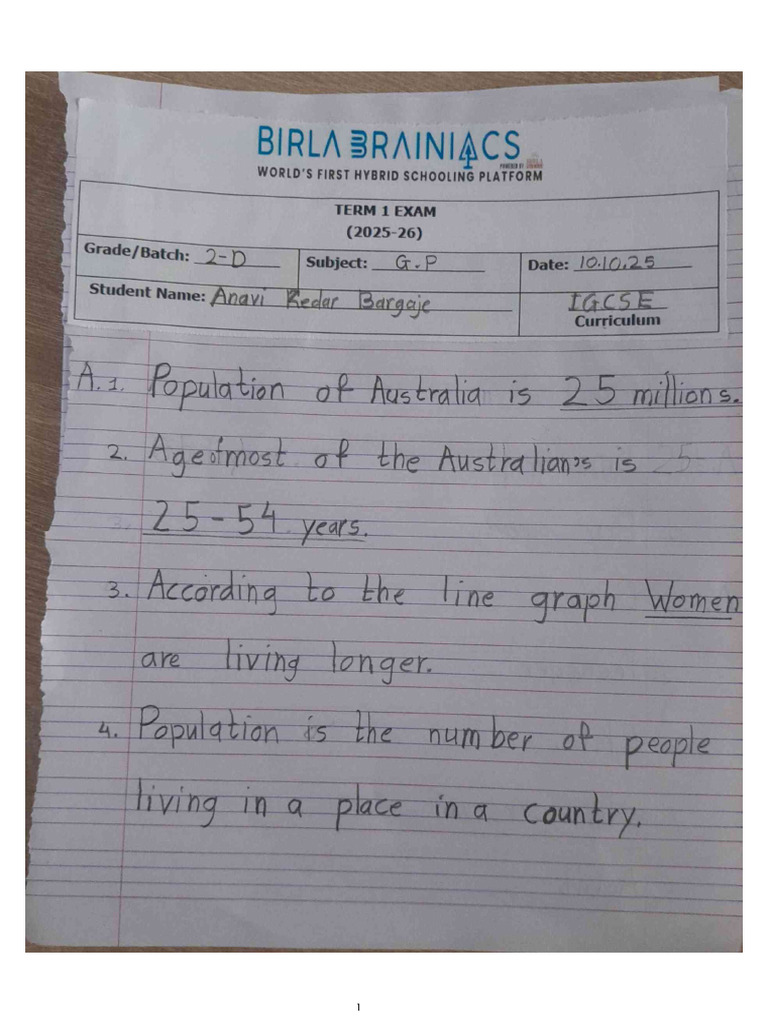 BIRLA BRAINIACS
WORLD'S FIRST HYBRID SCHOOLING PLATFORM
TERM 1 EXAM
(2025-26)
Grade/Batch: 2-D Subject: G.P Date: 10.10.25
Student Name: Anavi Kedar Bargaje IGCSE
Curriculum
A.1. Population of Australia is 25 millions.
2. Age of most of the Australian's is
25-54 years.
3. According to the line graph Women
are living longer.
4. Population is the number of people
living in a place in a country.
1